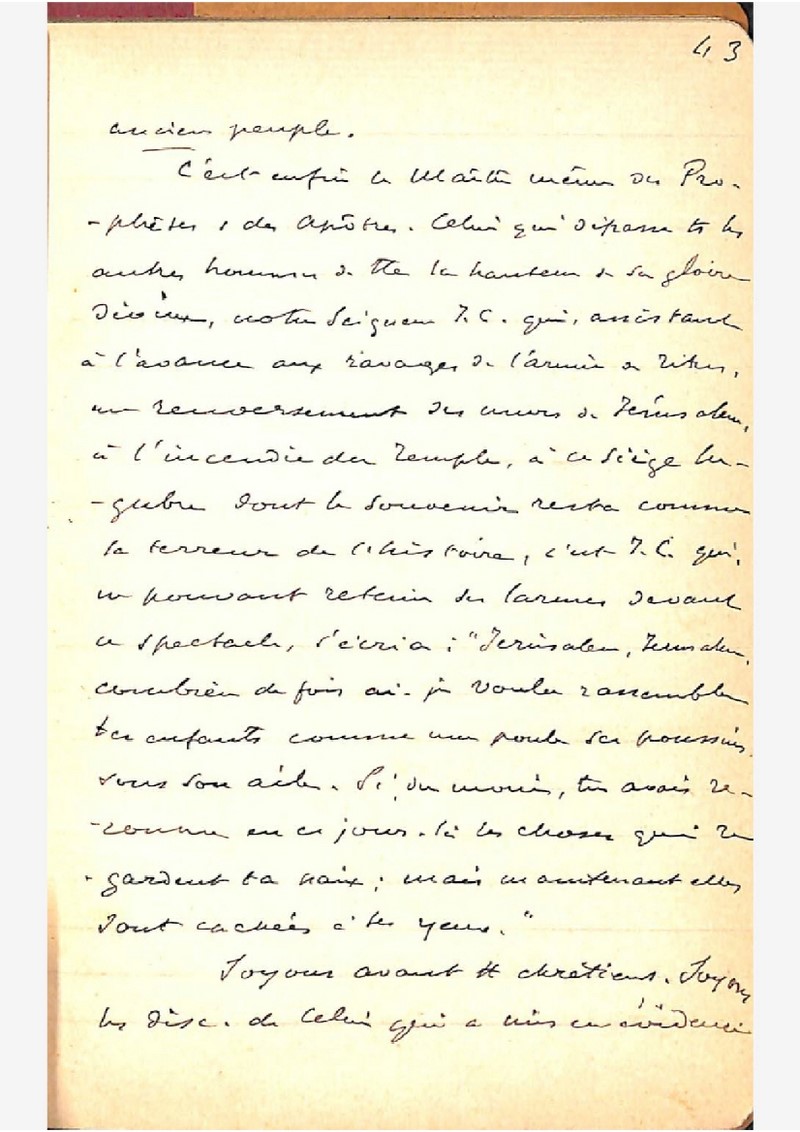 43
ancien peuple.
C'est enfin le Maître même des Pro-
-phètes & des Apôtres. Celui qui dépasse ts les
autres hommes de tte la hauteur de sa gloire
divine, notre Seigneur J.C. qui, assistant
à l'avance aux ravages de l'armée de Titus,
au renversement des murs de Jérusalem,
à l'incendie du Temple, à ce siège lu-
-gubre dont le souvenir resta comme
la terreur de l'histoire, c'est J.C. qui,
ne pouvant retenir ses larmes devant
ce spectacle, s'écria : "Jérusalem, Jérusalem,
combien de fois ai-je voulu rassembler
tes enfants comme une poule ses poussins
sous son aile. Si, du moins, tu avais re-
-connu en ce jour-là les choses qui re
-gardent ta paix ; mais maintenant elles
sont cachées à tes yeux."
Soyons avant tt chrétiens. Soyons
les disc. de Celui qui a mis en évidence